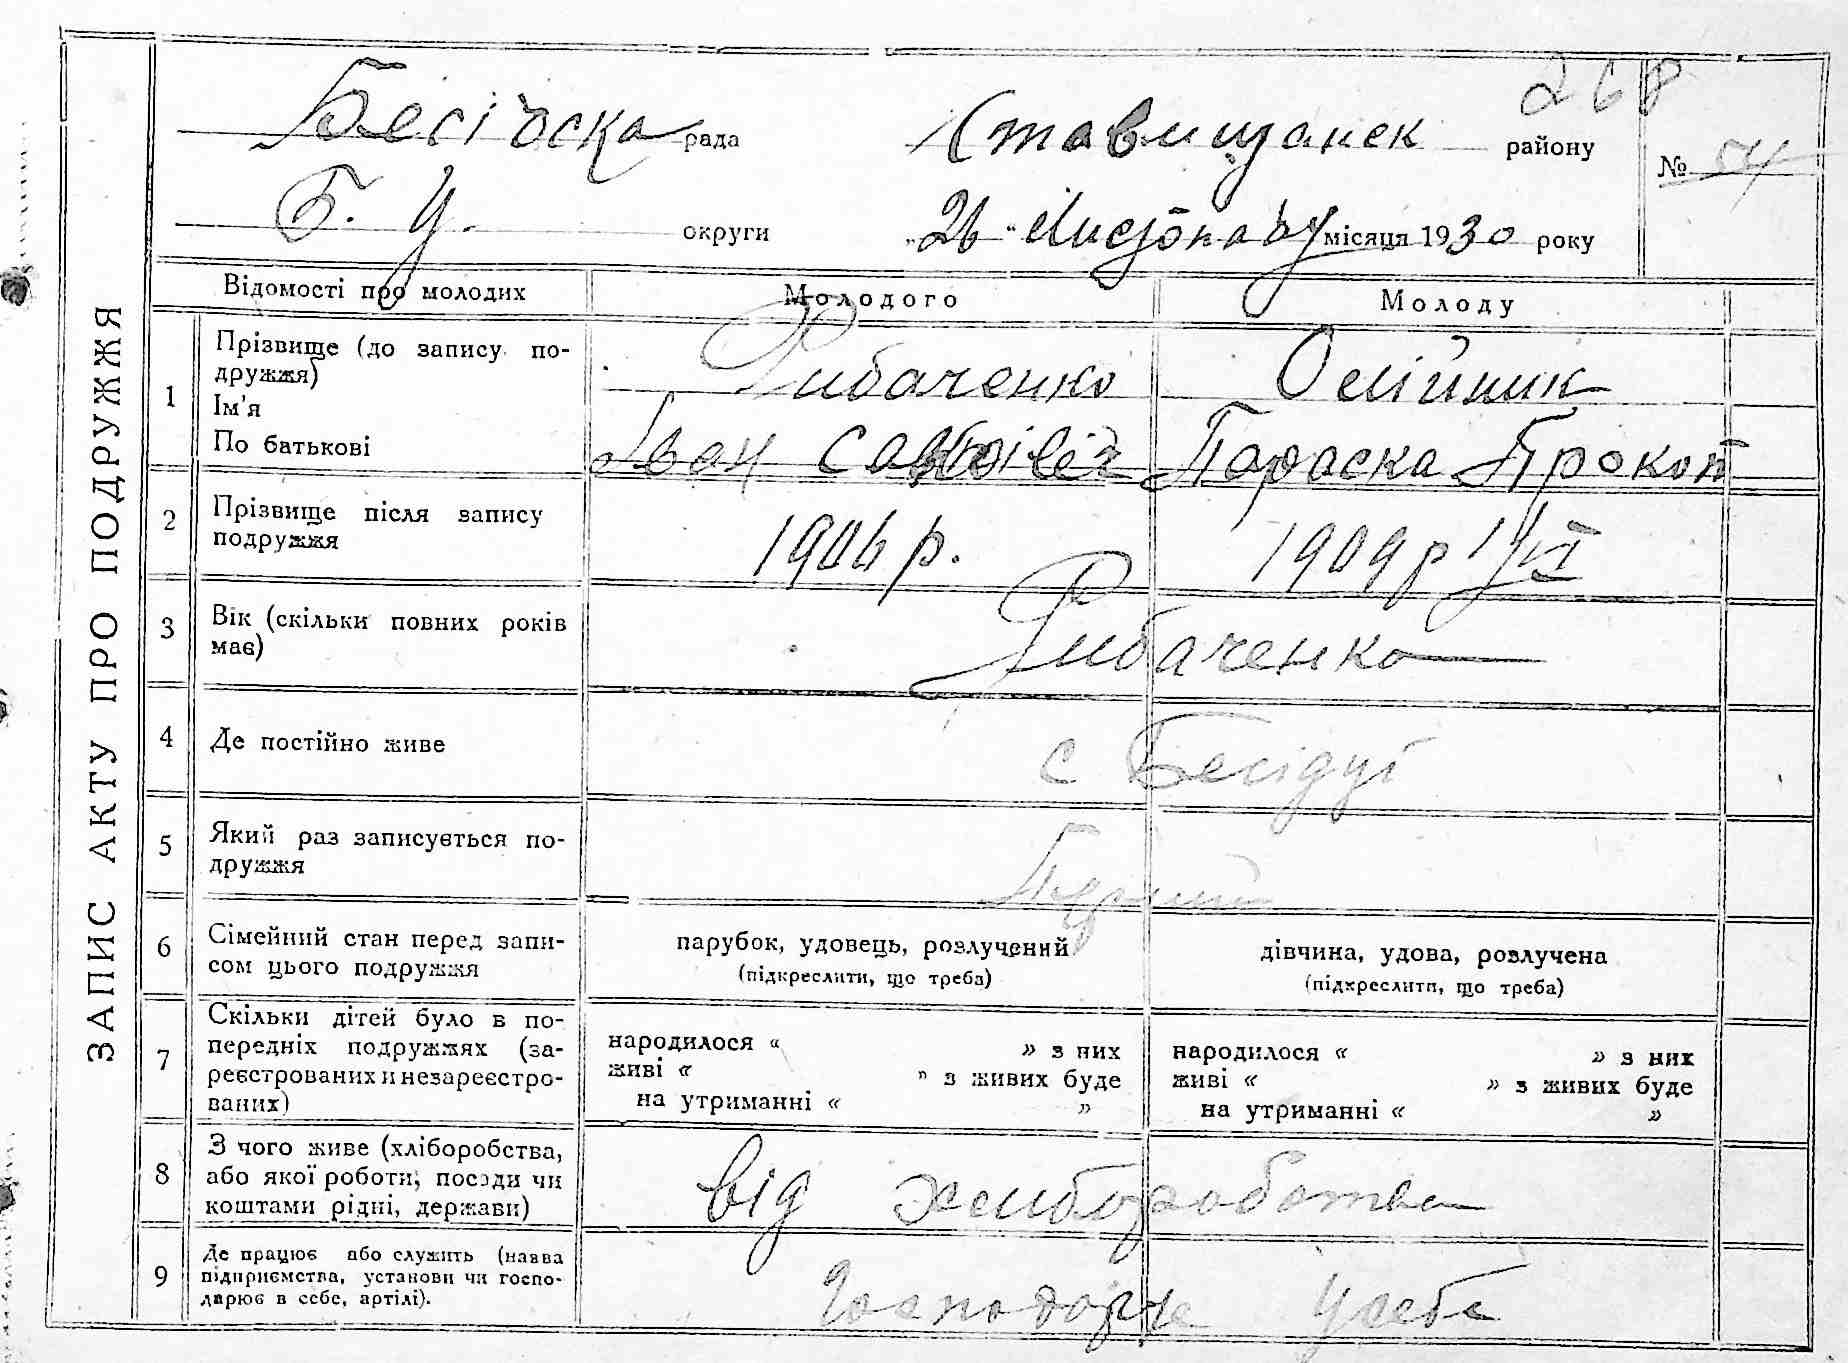 268
Бесідска рада Ставищанск району № 54
Б. Ц. округи „26“ місяця 1930 року
ЗАПИС АКТУ ПРО ПОДРУЖЖЯ
Відомості про молодих Молодого Молоду
1 Прізвище (до запису по-
дружжя) Рибаченко Олійник
Ім'я
По батькові Іван Параска Прокоп
2 Прізвище після запису
подружжя 1906 р. 1909 р
3 Вік (скільки повних років
має) Рибаченко
4 Де постійно живе с Бесідці
5 Який раз записується по-
дружжя Перший
6 Сімейний стан перед запи-
сом цього подружжя
парубок, удовець, розлучений
(підкреслити, що треба)
дівчина, удова, розлучена
(підкреслити, що треба)
7 Скільки дітей було в по-
передніх подружжях (за-
реєстрованих и незареєстро-
ваних)
народилося « » з них
живі « » з живих буде
на утриманні « »
народилося « » з них
живі « » з живих буде
на утриманні « »
8 З чого живе (хліборобства,
або якої роботи, посади чи
коштами рідні, держави) від хлиборобства
9 Де працює або служить (назва
підприємства, установи чи госпо-
дарює в себе, артілі). Господарює усебе